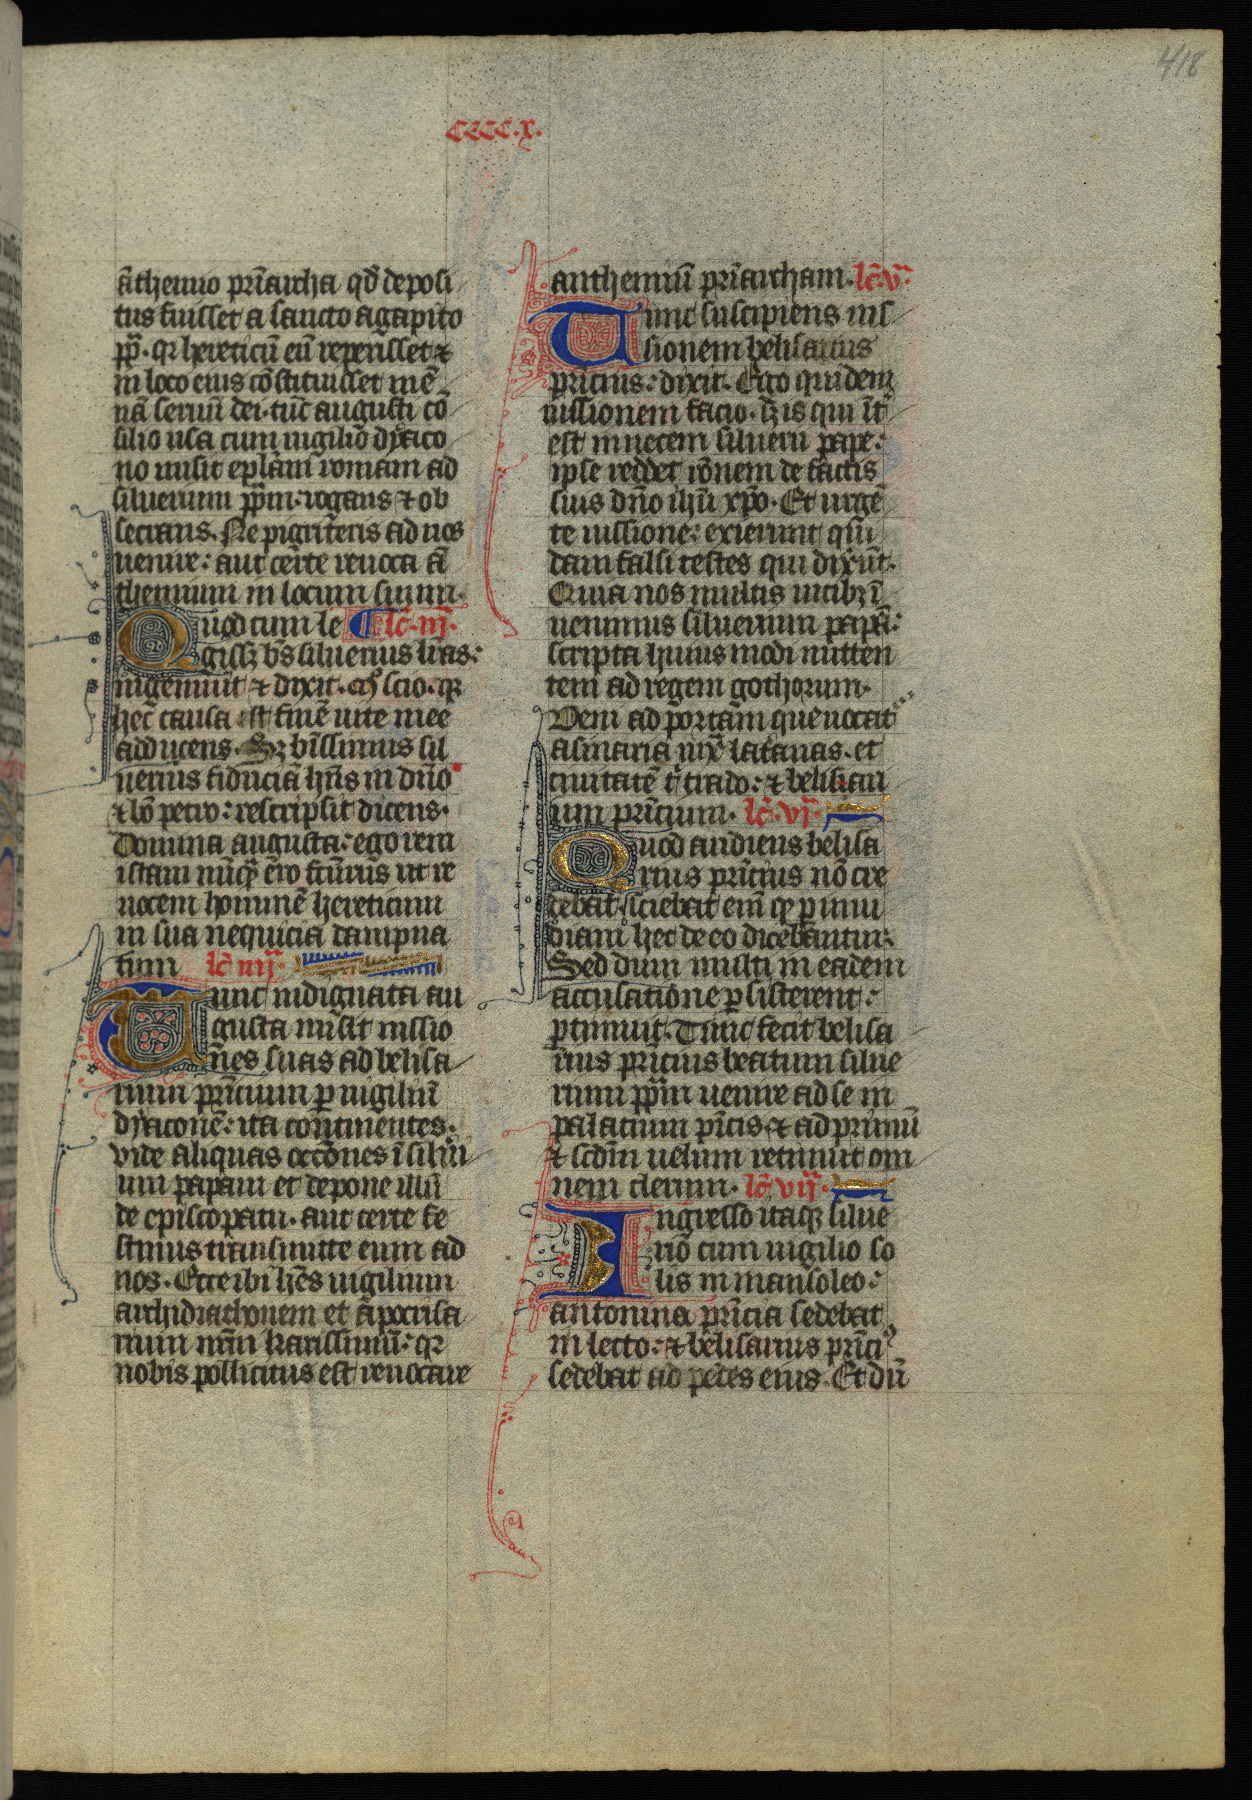 418
CCCC.X.
ãthemio pr̃iarcha qđ deposi
tus fuisset a sancto agapito
pp̃. qr hereticũ eũ reperisset ⁊
in loco eius cõstituisset mẽ
nã seruũ dei. tũc augusti cõ
silio usa cum uigilio dyaco
no misit ep̃lam romam ad
siluerium pp̃m: rogans ⁊ ob
secrans. Ne pigriteris ad nos
uenire: aut certe reuoca ã
themium in locum suum.
Quod cum le lc̃. iij.
gisſꝫ bs̃ siluerius lr̃as:
ingemuit ⁊ dixit. scio. qr
hec causa est finẽ uite mee
adducens. Sꝫ bt̃issimus sil
uerius fiducia hñs in dño
⁊ bõ petro: rescripsit dicens.
Domina augusta: ego rem
istam nũꝗ̃ ero fcũrus ut re
uocem hominẽ hereticum
in sua nequicia dampna
tum lc̃ iiij.
Tunc indignata au
gusta misit iussio
nes suas ad belisa
rium pr̃icium p uigiliũ
dyaconẽ: ita continentes.
Vide aliquas occõnes ĩ silũi
um papam et depone illũ
de episcopatu. aut certe fe
stinus transmitte eum ad
nos. Ecce ibi hẽs uigilium
archidiachonem et apocrisa
rium nr̃m karissimũ: qr
nobis pollicitus est reuocare
anthemiũ pr̃iarcham. lc̃. v.
Tunc suscipiens ius
sionem belisarius
pricius: dixit. Ego quidem
iussionem facio. sꝫ is qui ĩt̾
est in necem siluerii pape:
ipse reddet rõnem de factis
suis dño ihũ xp̃o. Et urgẽ
te iussione: exierunt qui
dam falsi testes qui dixer̃t.
Quia nos multis uicibꝫ ĩ
uenimus siluerium papã:
scripta huius modi mitten
tem ad regem gothorum.
Veni ad portam que uocat̾
asinaria iux̃ lat̾anas. et
ciuitatẽ t̾ trado: ⁊ belisari
um pr̃icium. lc̃. vj.
Quod audiens belisa
rius pr̃icius nõ cre
debat. sciebat em̃ ꝙ p inui
diam hec de eo dicebantur.
Sed dum multi in eadem
accusatione p̱sisterent:
p̱timuit. Tunc fecit belisa
rius pricius beatum silue
rium pp̃m uenire ad se in
palacium p̃icis ⁊ ad primũ
⁊ sc̃dm uelum retinuit om
nem clerum. lc̃ vij.
Ingresso itaqꝫ silue
rio cum uigilio so
lis in mausoleo:
antonina pr̃icia sedebat
in lecto: ⁊ belisarius pr̃ici⁹
sedebat ad pedes eius. Et dũ